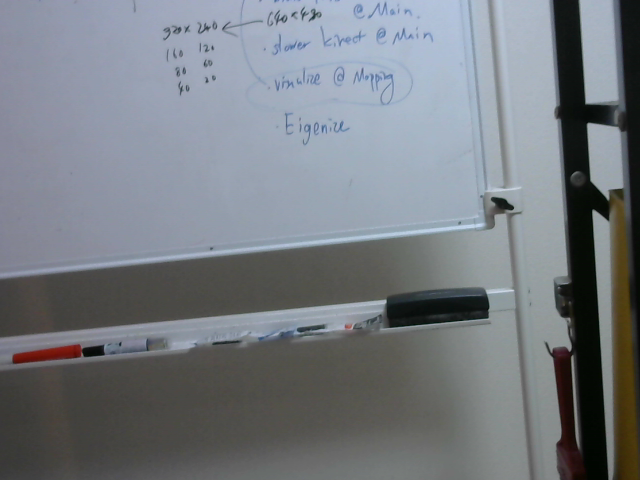 @ Main.
320 x 240 ← 640 x 480
160 120
80 60
40 20
· slower kinect @ Main
· visualize @ Mapping
· Eigenize